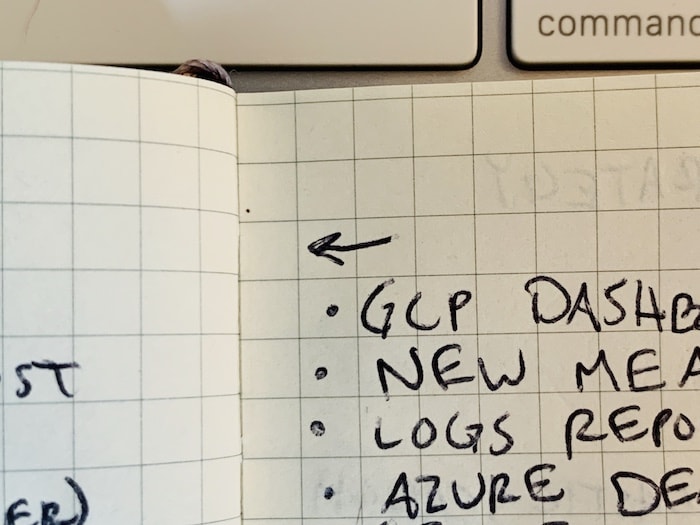 command
ST
ER)
← 
• GCP DASHB
• NEW MEA
• LOGS REPO
• AZURE DE